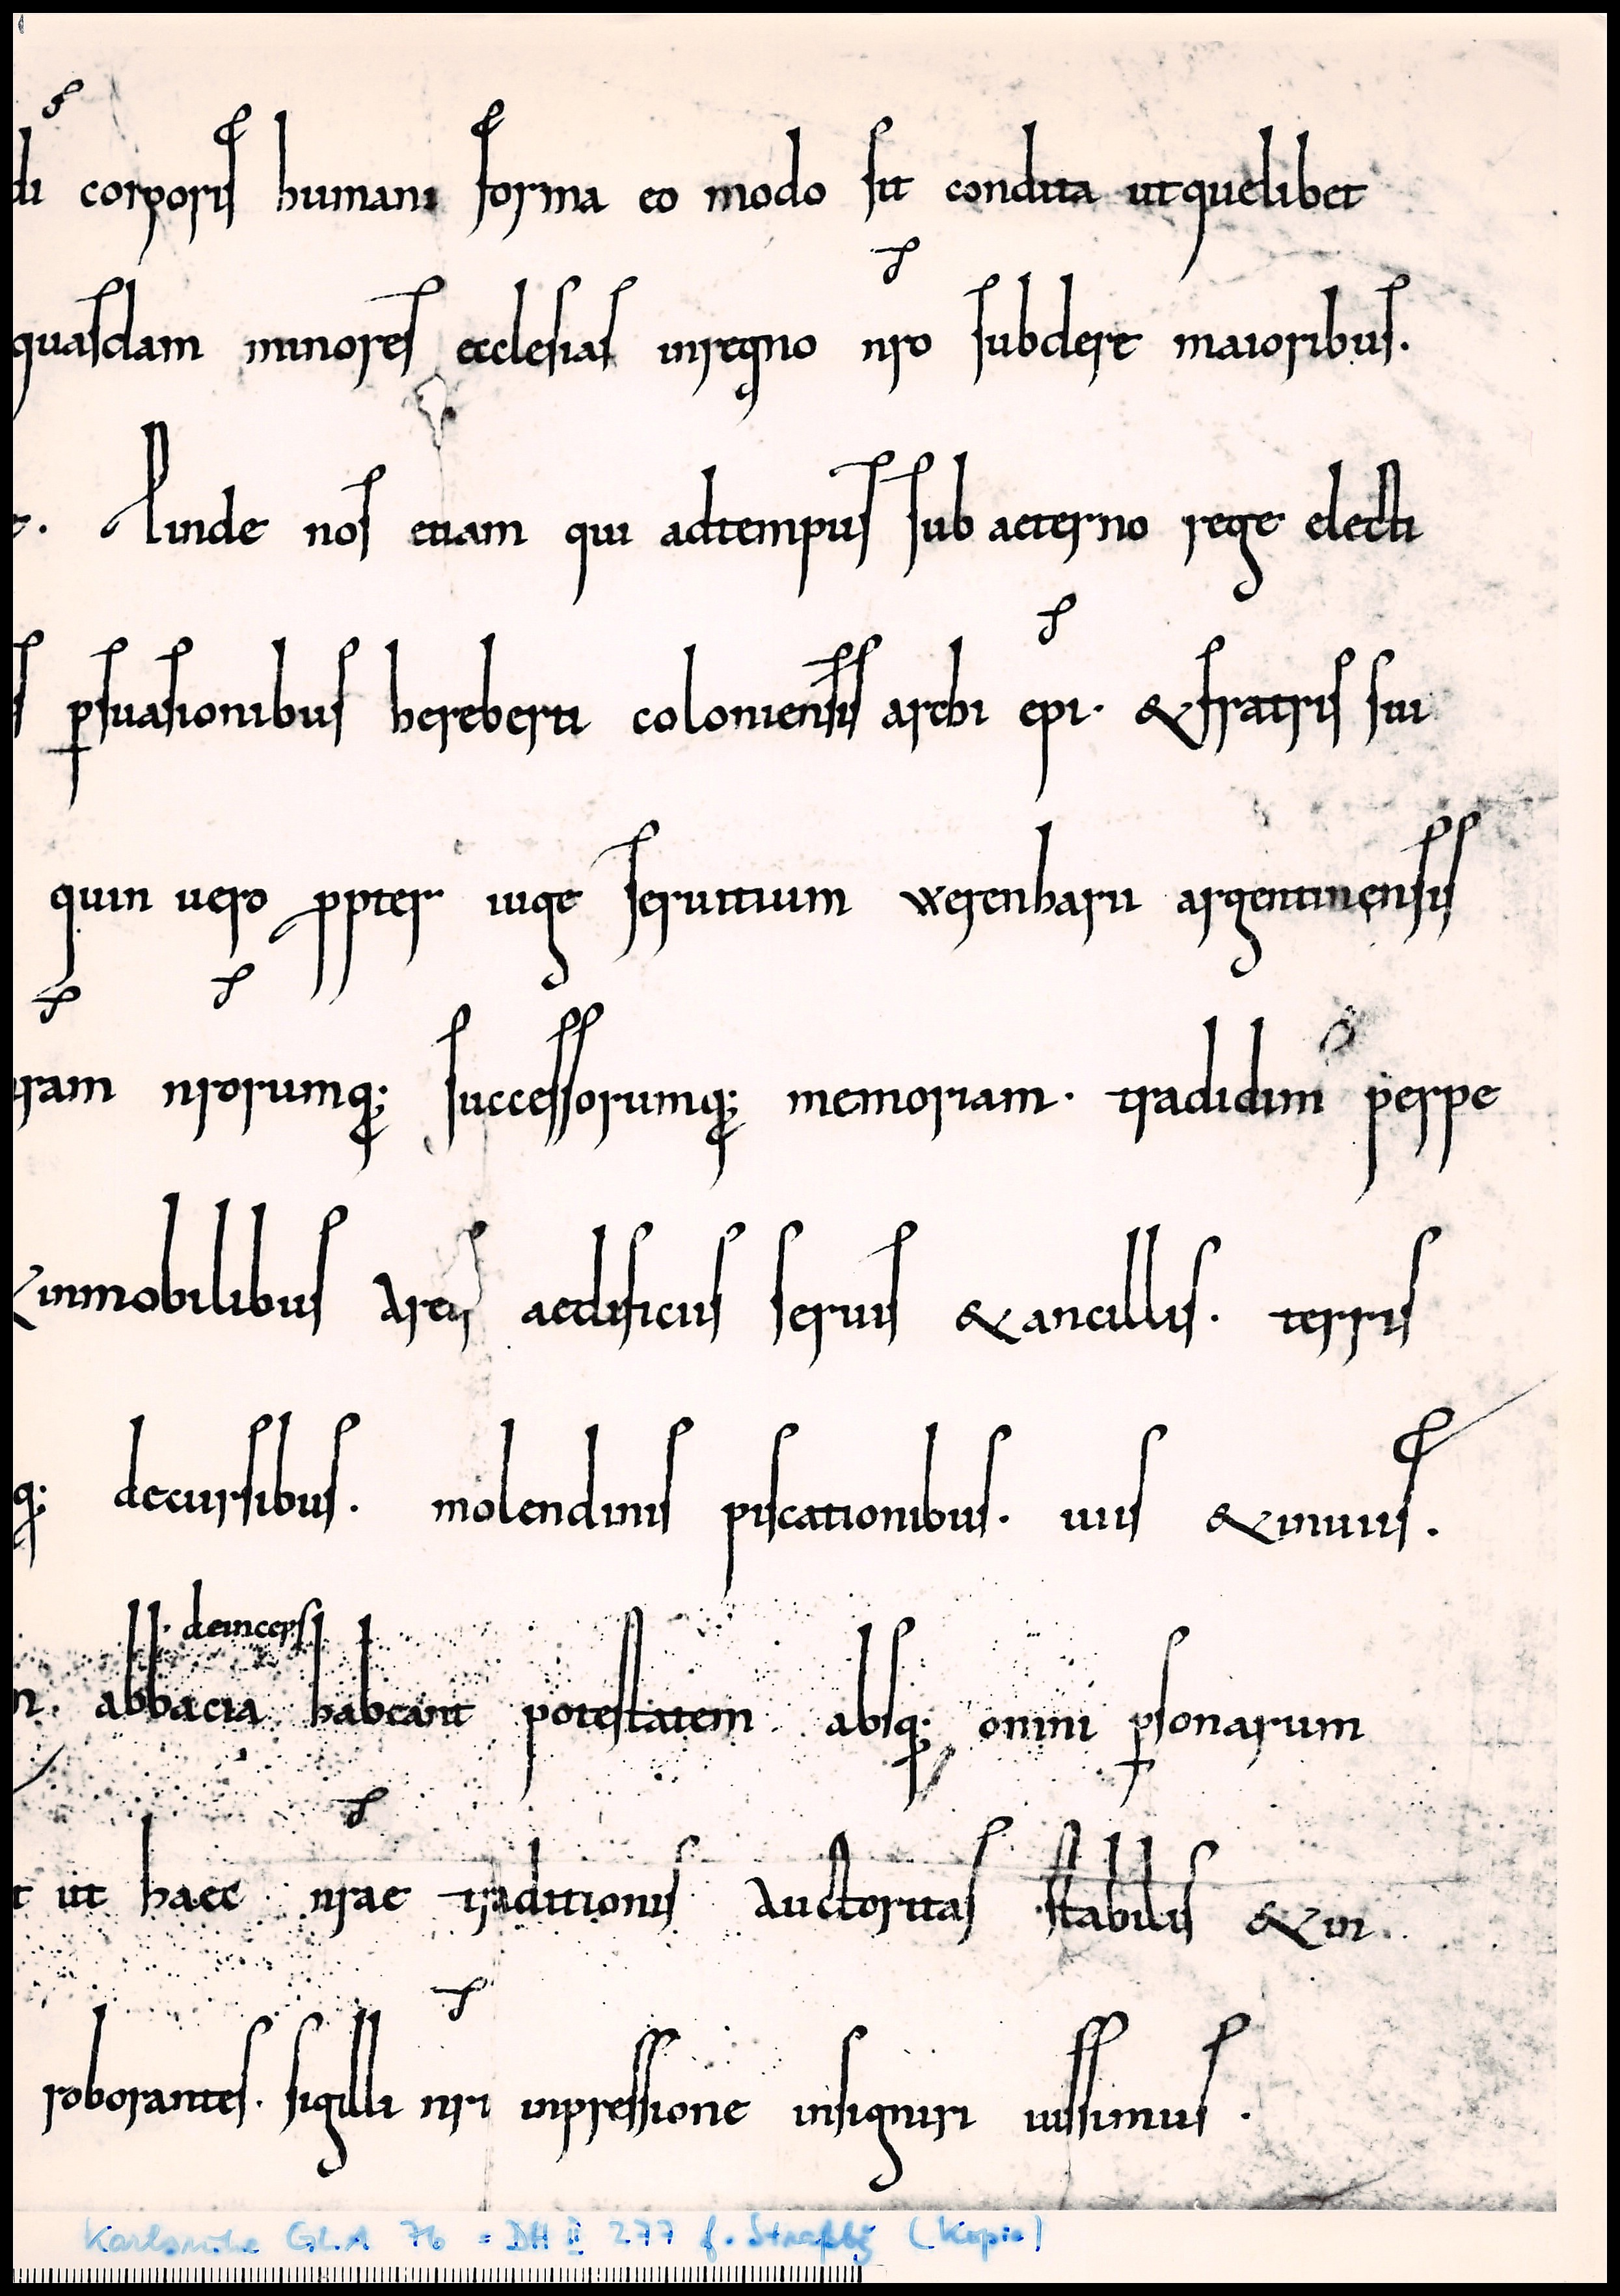 di corporis humani forma eo modo sit condita utquelibet
quasdam minores ecclesias inregno nro subdere maioribus.
Unde nos etiam qui adtempus sub aeterno rege electi
psuasionibus hereberti coloniensis archi epi. & fratris sui
quin uero ppter iuge seruitium werenharii argentinensis
nram nrorumq; successorumq; memoriam. tradidim perpe
&inmobilibus Areis aedificiis seruis &ancillis. terris
q; decursibus. molendinis piscationibus. uiis &inuiis.
deinceps
abbacia habeant potestatem absq; omni psonarum
ut haec nrae traditionis Auctoritas stabilis &in
roborantes. sigilli nri inpressione insigniri iussimus.
Karlsruhe GLA 76 = DH II 277 f. Straßbg (Kopie)